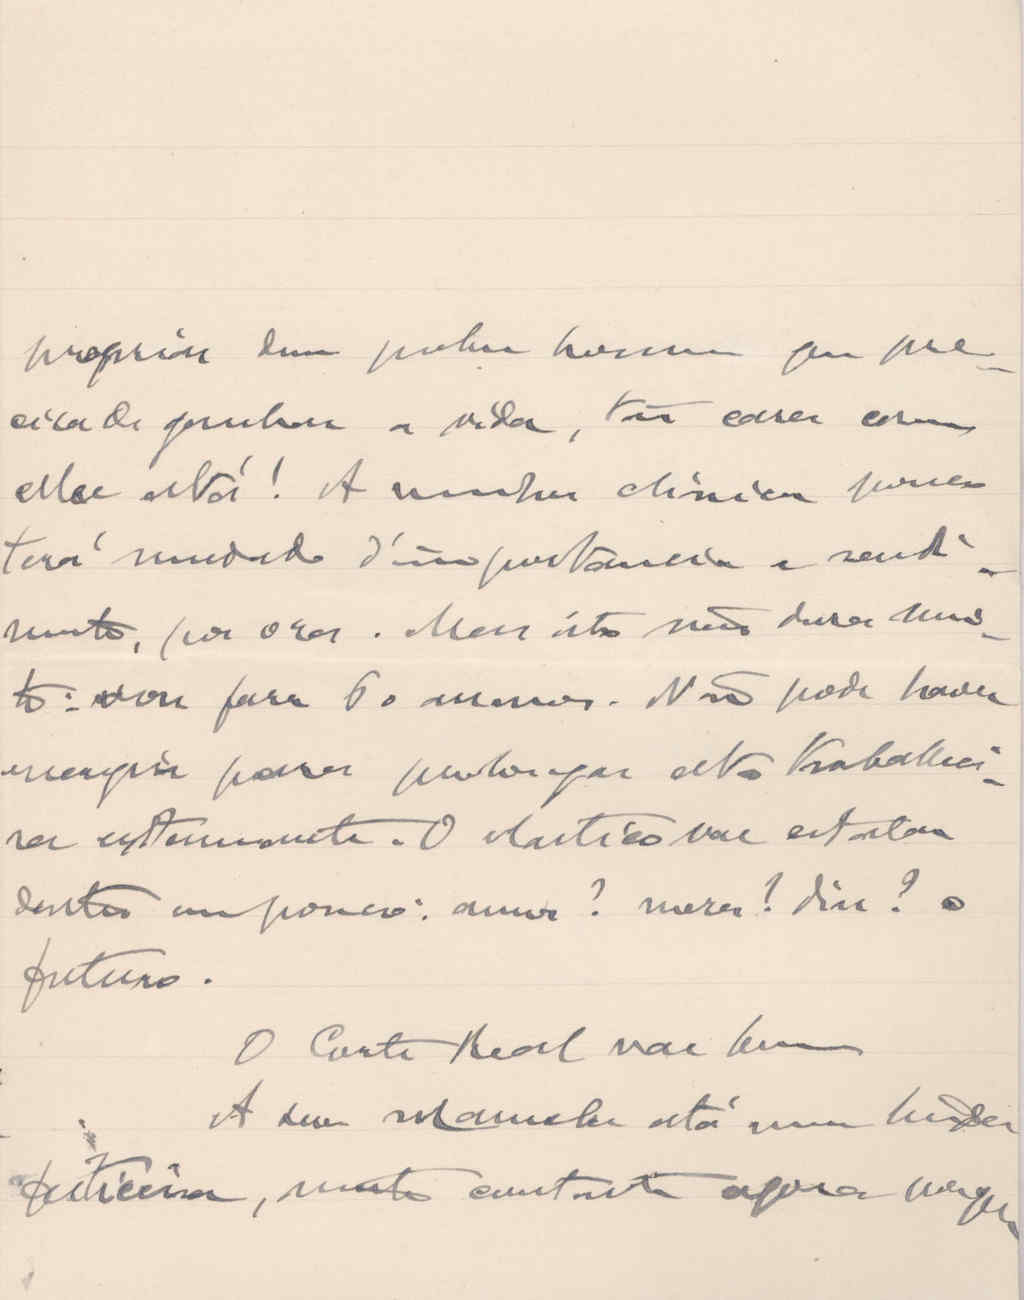 propria dum pobre homem que pre-
cisa de ganhar a vida, tão cara como
ella está! A minha clinica pouco
terá mudado d'importancia e rendi-
mento, por ora. Mas isto não dura mui-
to: vou fazer 60 annos. Não pode haver
energia para prolongar esta trabalhei-
ra extenuante. O elastico vae estalar
dentro em pouco: annos? mezes? dias? o
futuro.
O Corte Real vae bem
A sua Manuela está uma linda
feiticeira, muito contente agora porque